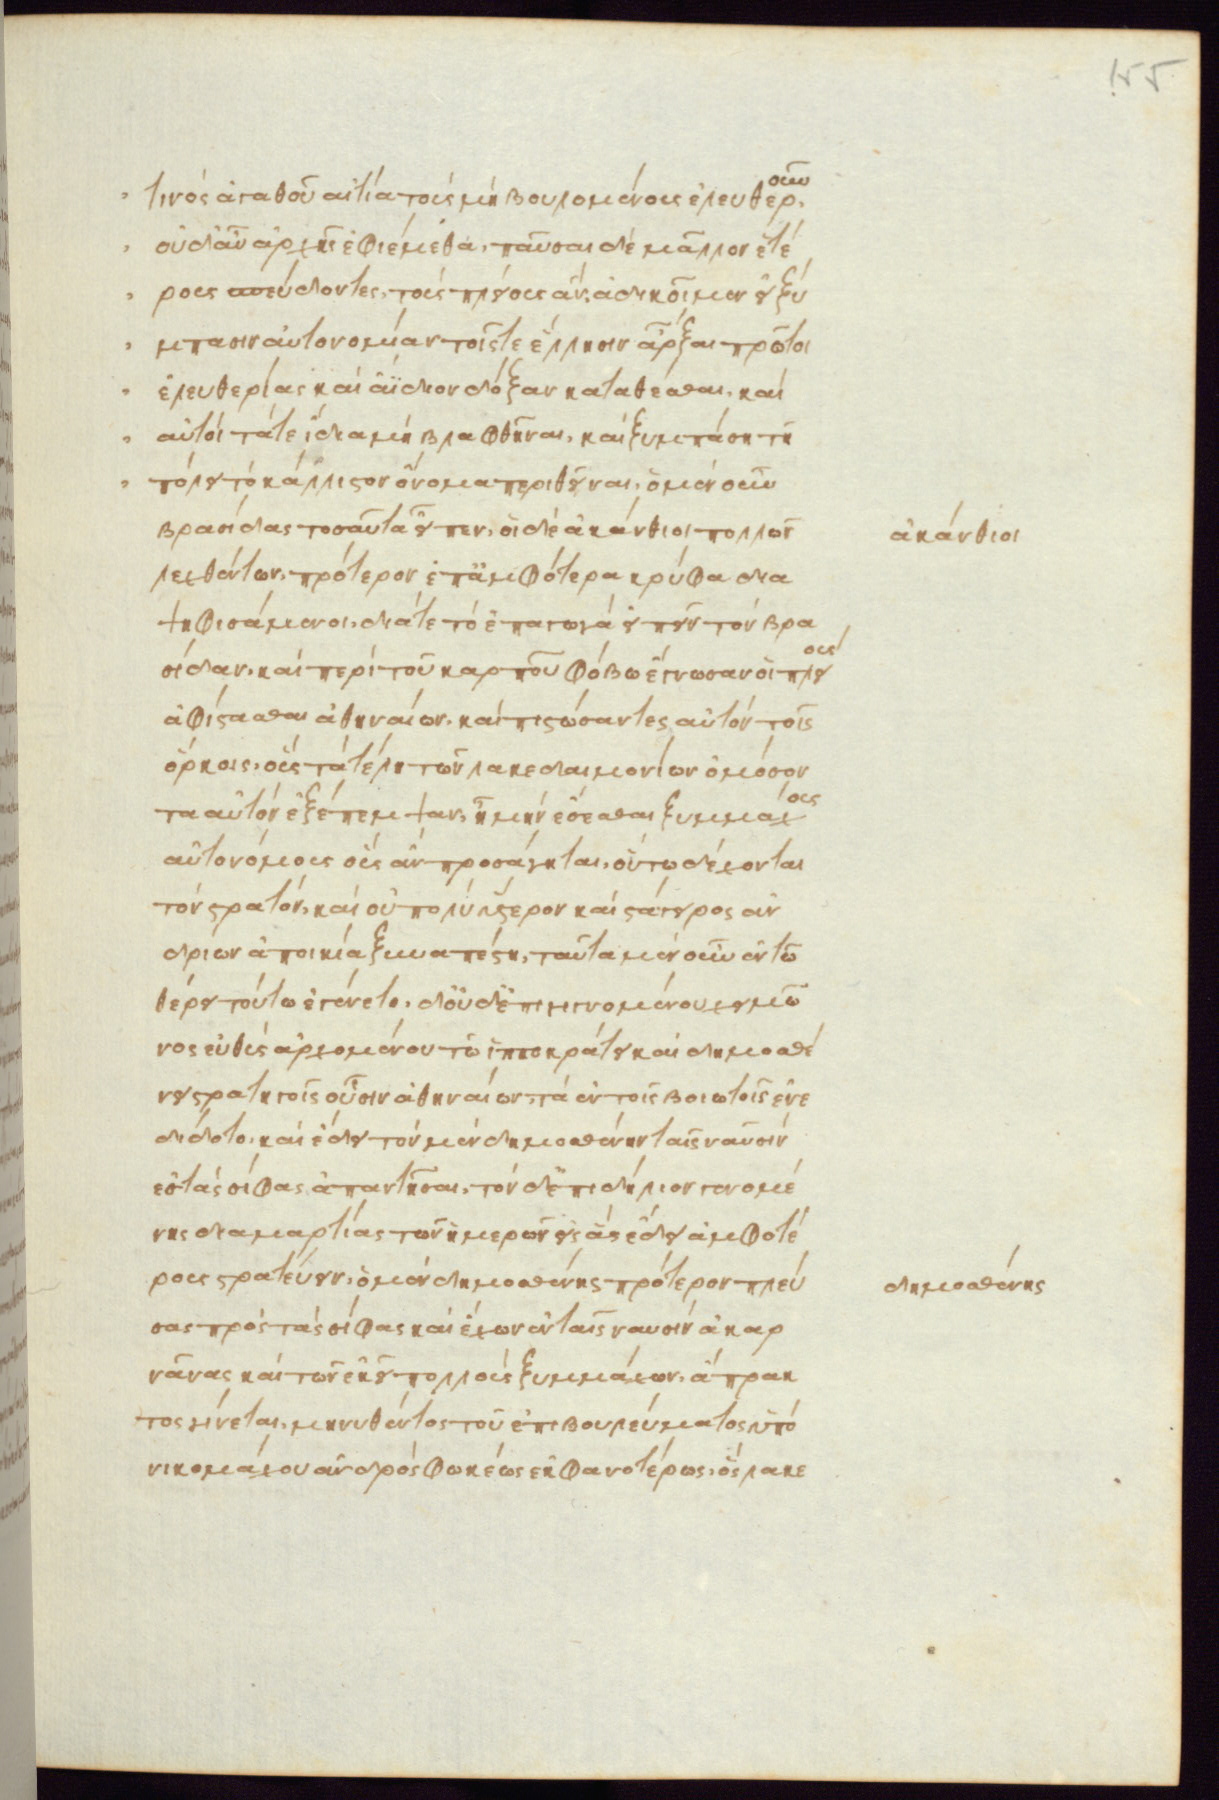 155
τινὸς ἀγαθοῦ αἰτία τοὺς μὴ βουλομένους ἐλευθεροῦν.
οὐδ' αὖ ἀρχῆς ἐφιέμεθα, παῦσαι δὲ μᾶλλον ἑτέ
ρους σπεύδοντες, τοὺς πλείους ἂν ἀδικοῖμεν εἰ ξύ
μπασιν αὐτονομίαν τοῖς τε ἕλλησιν ἄρξαι πρῶτοι
ἐλευθερίας καὶ ἀΐδιον δόξαν καταθέσθαι, καὶ
αὐτοί τά τε ἴδια μὴ βλαφθῆναι, καὶ ξυμπάση τῆ
πόλει τὸ κάλλιστον ὄνομα περιθεῖναι, ὁ μὲν οὖν
βρασίδας τοσαῦτα εἶπεν, οἱ δὲ ἀκάνθιοι πολλῶν
ἀκάνθιοι
λεχθέντων, πρότερον ἐπ' ἀμφότερα κρύφα δια
ψηφισάμενοι, διά τε τὸ ἐπαγωγὰ εἰπεῖν τὸν βρα
σίδαν, καὶ περὶ τοῦ καρποῦ φόβω ἔγνωσαν οἱ πλείους
ἀφίστασθαι ἀθηναίων, καὶ πιστώσαντες αὐτὸν τοῖς
ὅρκοις, οὓς τὰ τέλη τῶν λακεδαιμονίων ὀμόσαν
τα αὐτὸν ἐξέπεμψαν, ἦ μὴν ἔσεσθαι ξυμμάχους
αὐτονόμους οὓς ἂν προσάγηται, οὕτω δέχονται
τὸν στρατόν, καὶ οὐ πολὺ ὕστερον καὶ στάγειρος ἀν
δρίων ἀποικία ξυναπέστη, ταῦτα μὲν οὖν ἐν τῶ
θέρει τούτω ἐγένετο, τοῦ δ' ἐπιγιγνομένου χειμῶ
νος εὐθὺς ἀρχομένου τῶ ἱπποκράτει καὶ δημοσθέ
νει στρατηγοῖς οὖσιν ἀθηναίων, τὰ ἐν τοῖς βοιωτοῖς ἐνε
δίδοτο, καὶ ἔδει τὸν μὲν δημοσθένην ταῖς ναυσὶν
ἐς τὰς σίφας ἀπαντῆσαι, τὸν δ' ἐπὶ δήλιον γενομέ
νης διαμαρτίας τῶν ἡμερῶν εἰς ἃς ἔδει ἀμφοτέ
ρους στρατεύειν, ὁ μὲν δημοσθένης πρότερον πλεύ
δημοσθένης
σας πρὸς τὰς σίφας καὶ ἔχων ἐν ταῖς ναυσὶν ἀκαρ
νᾶνας καὶ τῶν ἐκεῖ πολλοὺς ξυμμάχων, ἄπρακ
τος γίνεται, μηνυθέντος τοῦ ἐπιβουλεύματος ὑπὸ
νικομάχου ἀνδρὸς φωκέως ἐκ φανοτέρως, ὃς λακε